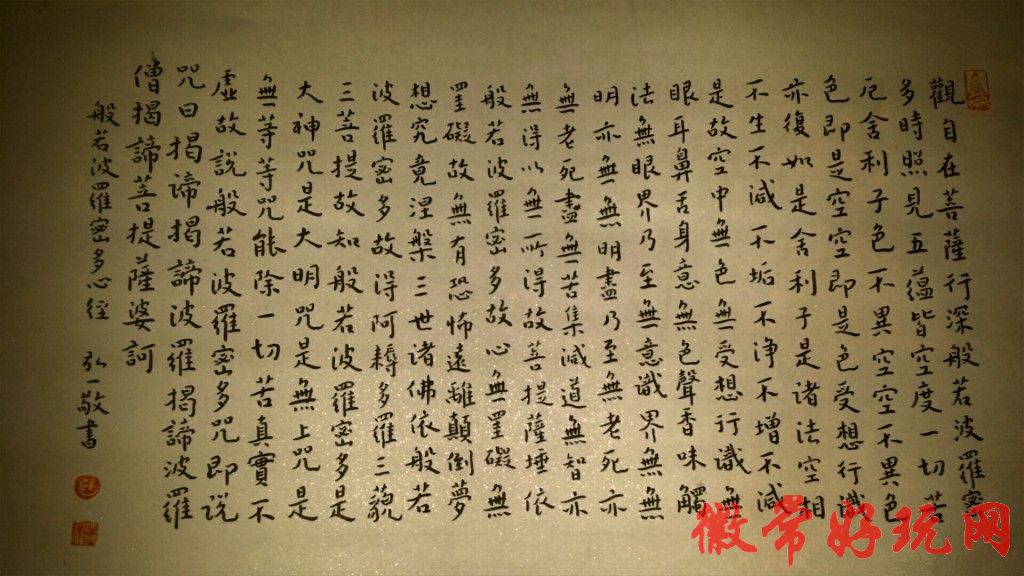 觀自在菩薩行深般若波羅密
多時照見五蘊皆空度一切苦
厄舍利子色不異空空不異色
色即是空空即是色受想行識
亦復如是舍利子是诸法空相
不生不減不垢不浄不增不減
是故空中無色無受想行識無
眼耳鼻舌身意無色聲香味觸
法無眼界乃至無意識界無無
明亦無無明盡乃至無老死亦
無老死盡無苦集減道無智亦
無得以無所得故菩提薩埵依
般若波羅密多故心無罣礙無
罣礙故無有恐怖遠離顛倒夢
想究竟涅槃三世诸佛依般若
波羅密多故得阿耨多羅三藐
三菩提故知般若波羅密多是
大神咒是大明咒是無上咒是
無等等咒能除一切苦真實不
虛故說般若波羅密多咒即说
咒曰揭諦揭諦波羅揭諦波羅
僧揭諦菩提薩婆訶
般若波羅密多心经 弘一敬書
徽常好玩网